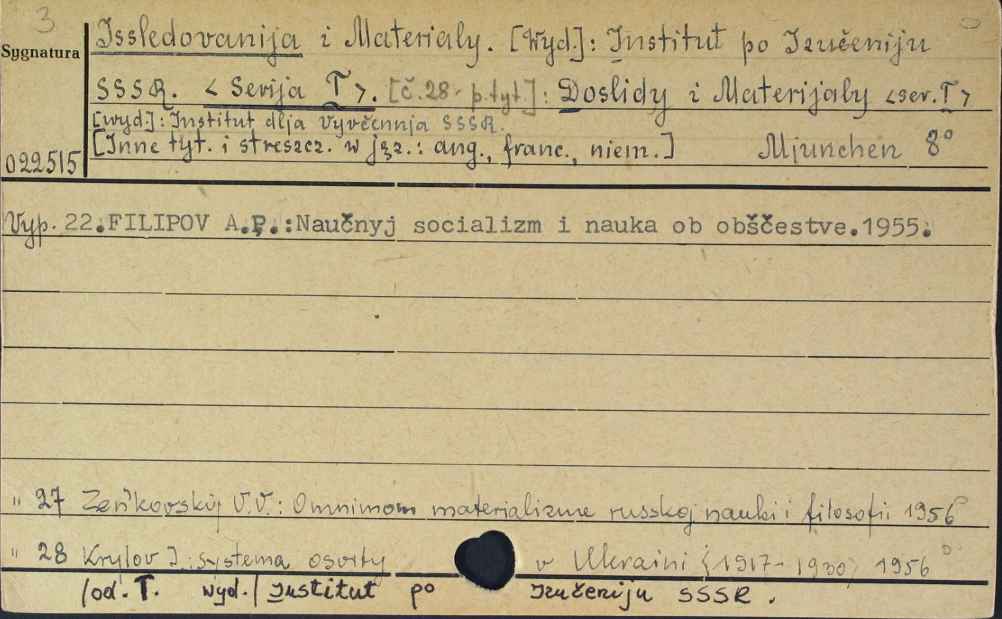 3
Sygnatura
022515
Issledovanija i Materialy. [Wyd.]: Institut po Izučeniju
SSSR. < Serija T >. [č.28 - p.tyt.]: Doslidy i Materijaly <ser. T>
[wyd]: Institut dlja Vyvčennja SSSR.
[Inne tyt. i streszcz. w jęz.: ang., franc., niem.] Mjunchen 8°
Vyp. 22. FILIPOV A.P.: Naučnyj socializm i nauka ob obščestve. 1955.
" 27 Zeńkovskij V.V.: O mnimom materializme russkoj nauki i filosofii 1956
" 28 Krylov I.: Systema osvity w Ukraini (1917-1930) 1956
/od. T. wyd./ Institut po Izučeniju SSSR.